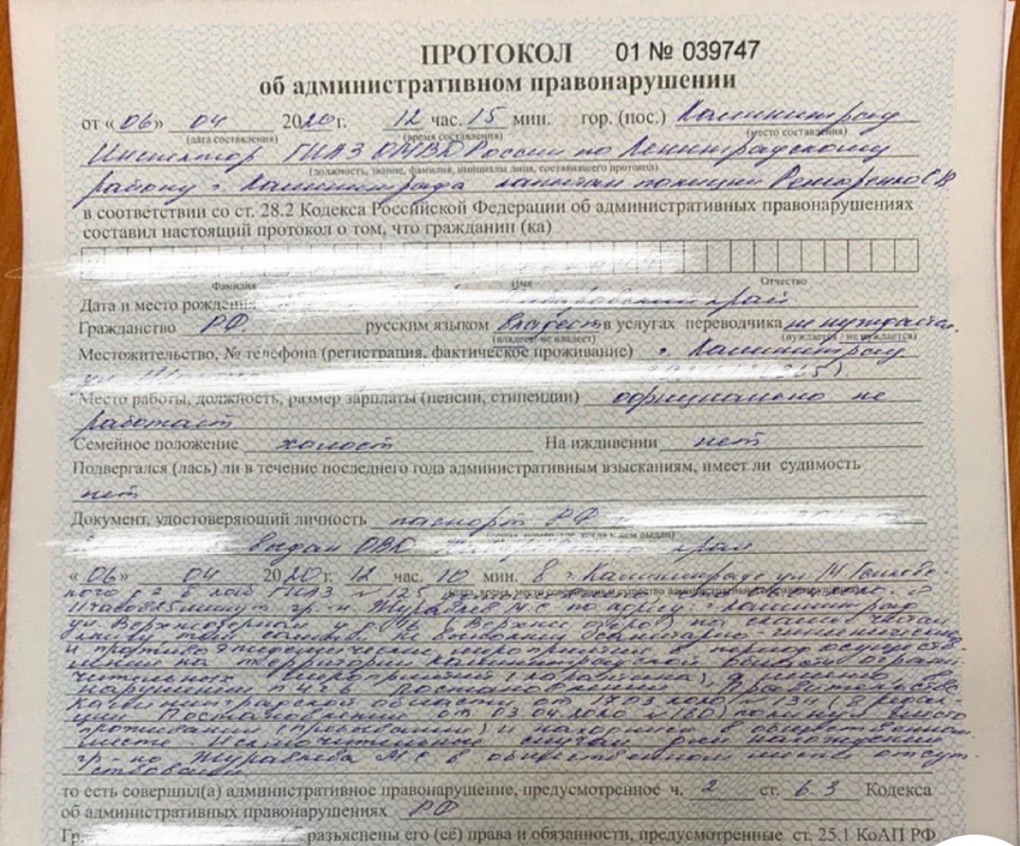 ПРОТОКОЛ 01 № 039747
об административном правонарушении
от « 06 » 04 2020 г. 12 час. 15 мин. гор. (пос.) Калининград
(дата составления) (время составления) (место составления)
Инспектор ГИАЗ ОМВД России по Ленинградскому
(должность, звание, фамилия, инициалы лица, составившего протокол)
району г. Калининграда капитан полиции
в соответствии со ст. 28.2 Кодекса Российской Федерации об административных правонарушениях
составил настоящий протокол о том, что гражданин (ка)
Фамилия Имя Отчество
Дата и место рождения край
Гражданство РФ. русским языком владеет в услугах переводчика не нуждается.
(владеет/ не владеет) (нуждается / не нуждается)
Местожительство, № телефона (регистрация, фактическое проживание) г. Калининград
Место работы, должность, размер зарплаты (пенсии, стипендии) официально не
работает
Семейное положение холост На иждивении нет
Подвергался (лась) ли в течение последнего года административным взысканиям, имеет ли судимость
нет
Документ, удостоверяющий личность паспорт РФ
выдан ОВД края
« 06 » 04 2020 г. 12 час. 10 мин. В г. Калининграде ул
каб ГИАЗ № 125
11 часов 25 минут гр-н Журавлев М С по адресу г Калининград
ул Верхнеозерная (Верхнее озеро)
тем самым не выполнил санитарно-гигиенические
и противоэпидемические мероприятия в период осуществ-
ления на территории Калининградской области ограни-
чительных мероприятий (карантина), а именно в
нарушении п 4.6 постановления Правительства
Калининградской области от 17 03 2020 № 134 (в редак-
ции Постановления от 03.04.2020 № 160) покинул место
проживания (пребывания) и находился в общественном
месте Исключительные случаи для нахождения
гр-на Журавлева М С в общественном месте отсут-
ствовали
то есть совершил(а) административное правонарушение, предусмотренное ч. 2 ст. 6.3 Кодекса
об административных правонарушениях РФ
Гр. разъяснены его (её) права и обязанности, предусмотренные ст. 25.1 КоАП РФ